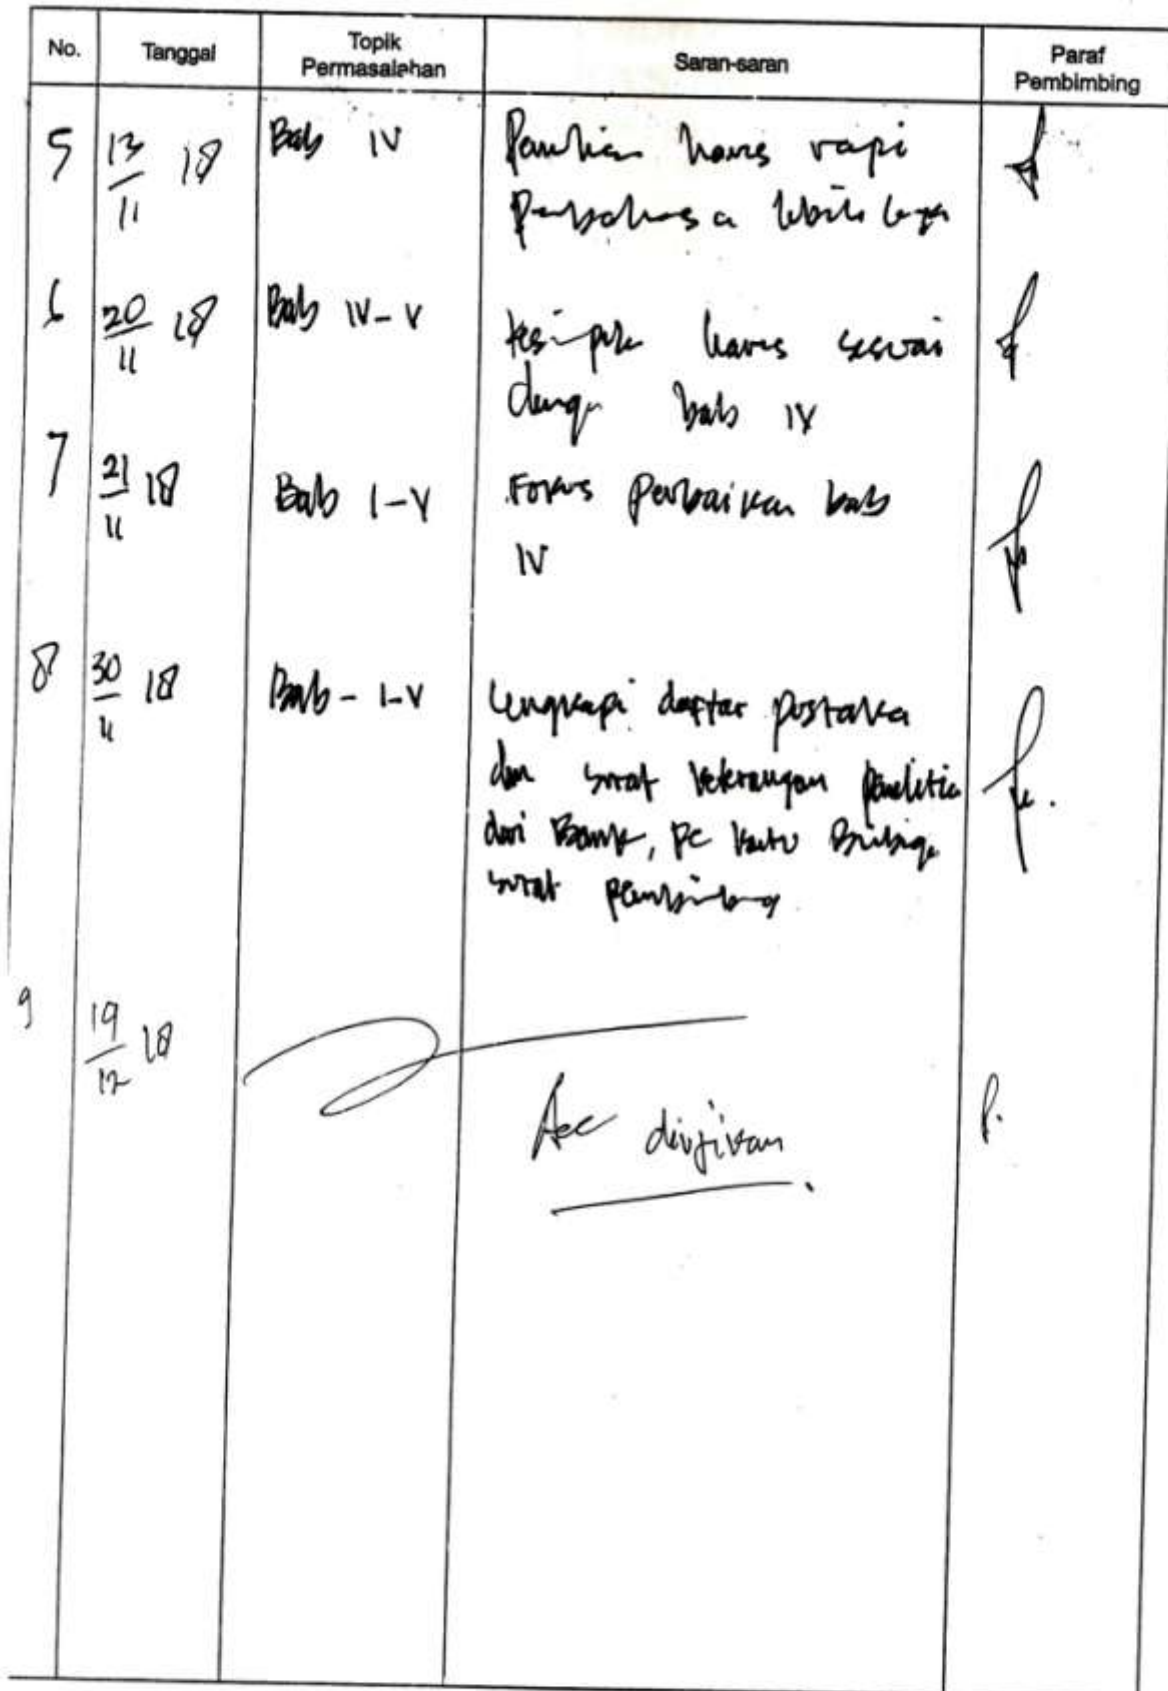 No. Tanggal Topik Permasalahan Saran-saran Paraf Pembimbing
5 13/11 18 Bab IV Penulisan harus rapi
lebih
6 20/11 18 Bab IV-V harus sesuai
dengan bab IV
7 21/11 18 Bab I-V Fokus perbaikan bab
IV
8 30/11 18 Bab-I-V Lengkapi daftar pustaka
dan surat keterangan penelitian
dari Bank,
surat pembimbing
9 19/12 18
Acc diujikan.